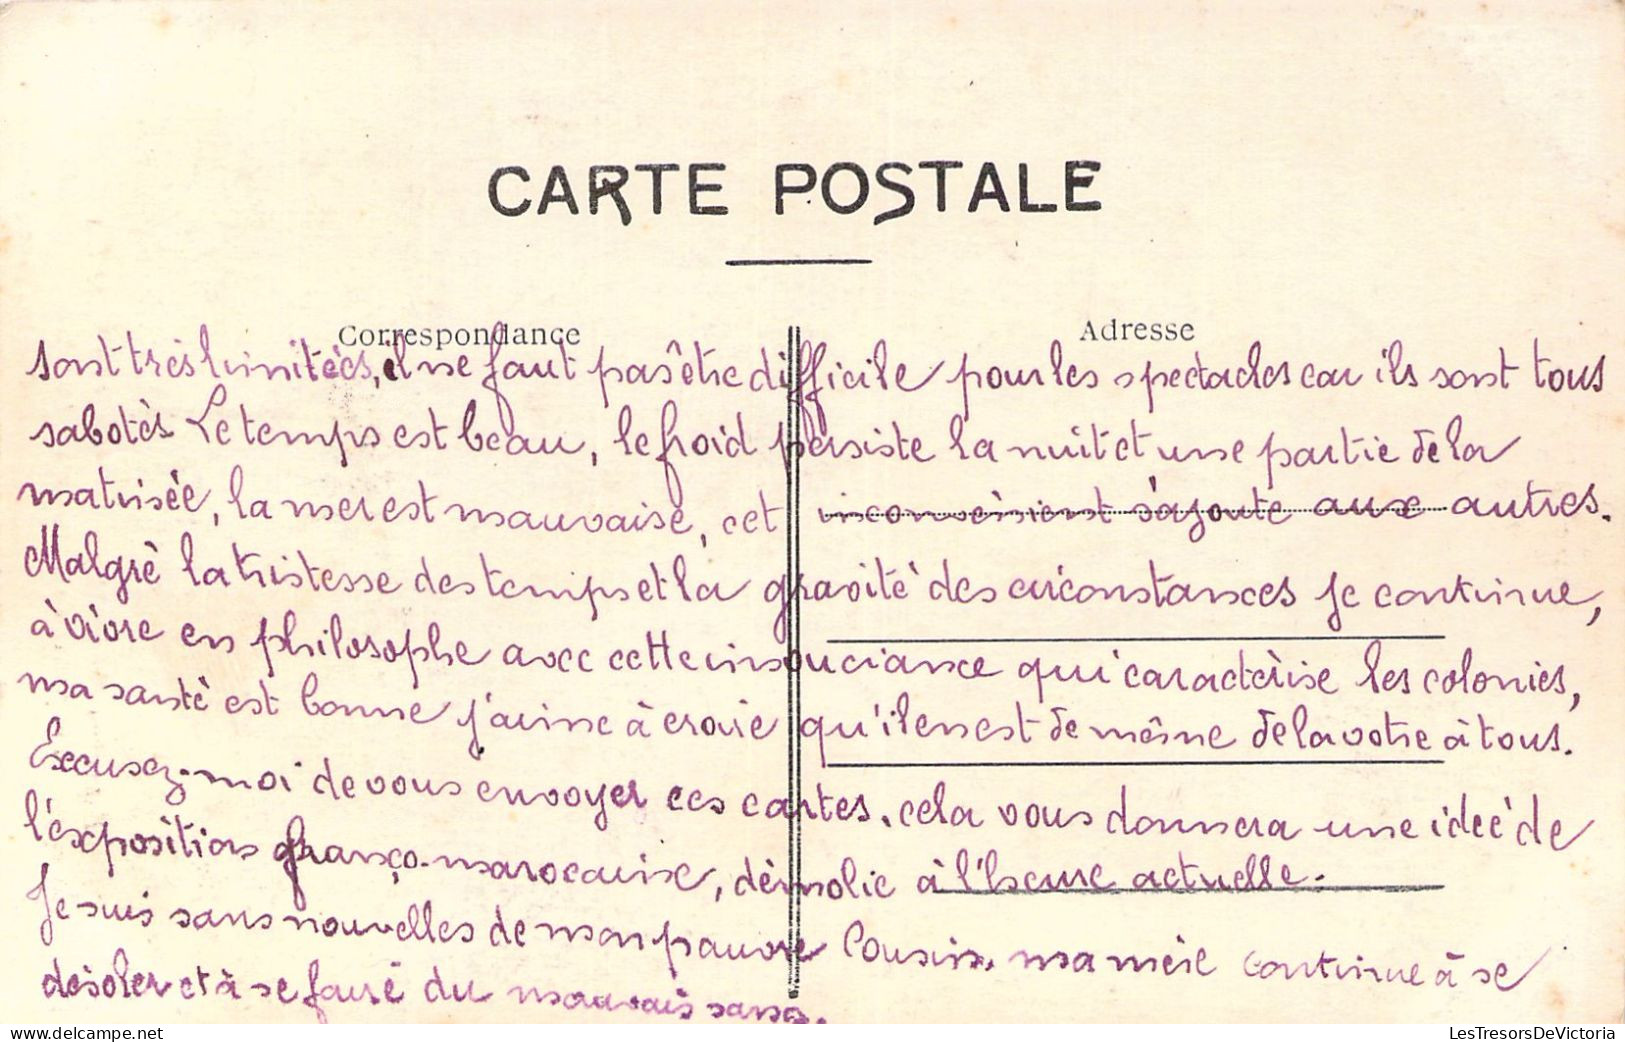 CARTE POSTALE
Correspondance
Adresse
sont très limitées, il ne faut pas être difficile pour les spectacles car ils sont tous
sabotés. Le temps est beau, le froid persiste la nuit et une partie de la
matinée, la mer est mauvaise, cet inconvénient s'ajoute aux autres.
Malgré la tristesse des temps et la gravité des circonstances je continue,
à vivre en philosophe avec cette insouciance qui caractérise les colonies,
ma santé est bonne j'aime à croire qu'il en est de même de la votre à tous.
Excusez-moi de vous envoyer ces cartes, cela vous donnera une idée de
l'exposition franço-marocaine, démolie à l'heure actuelle.
Je suis sans nouvelles de mon pauvre Cousin, ma mère continue à se
désoler et à se faire du mauvais sang.
LesTresorsDeVictoria
delcampe.net